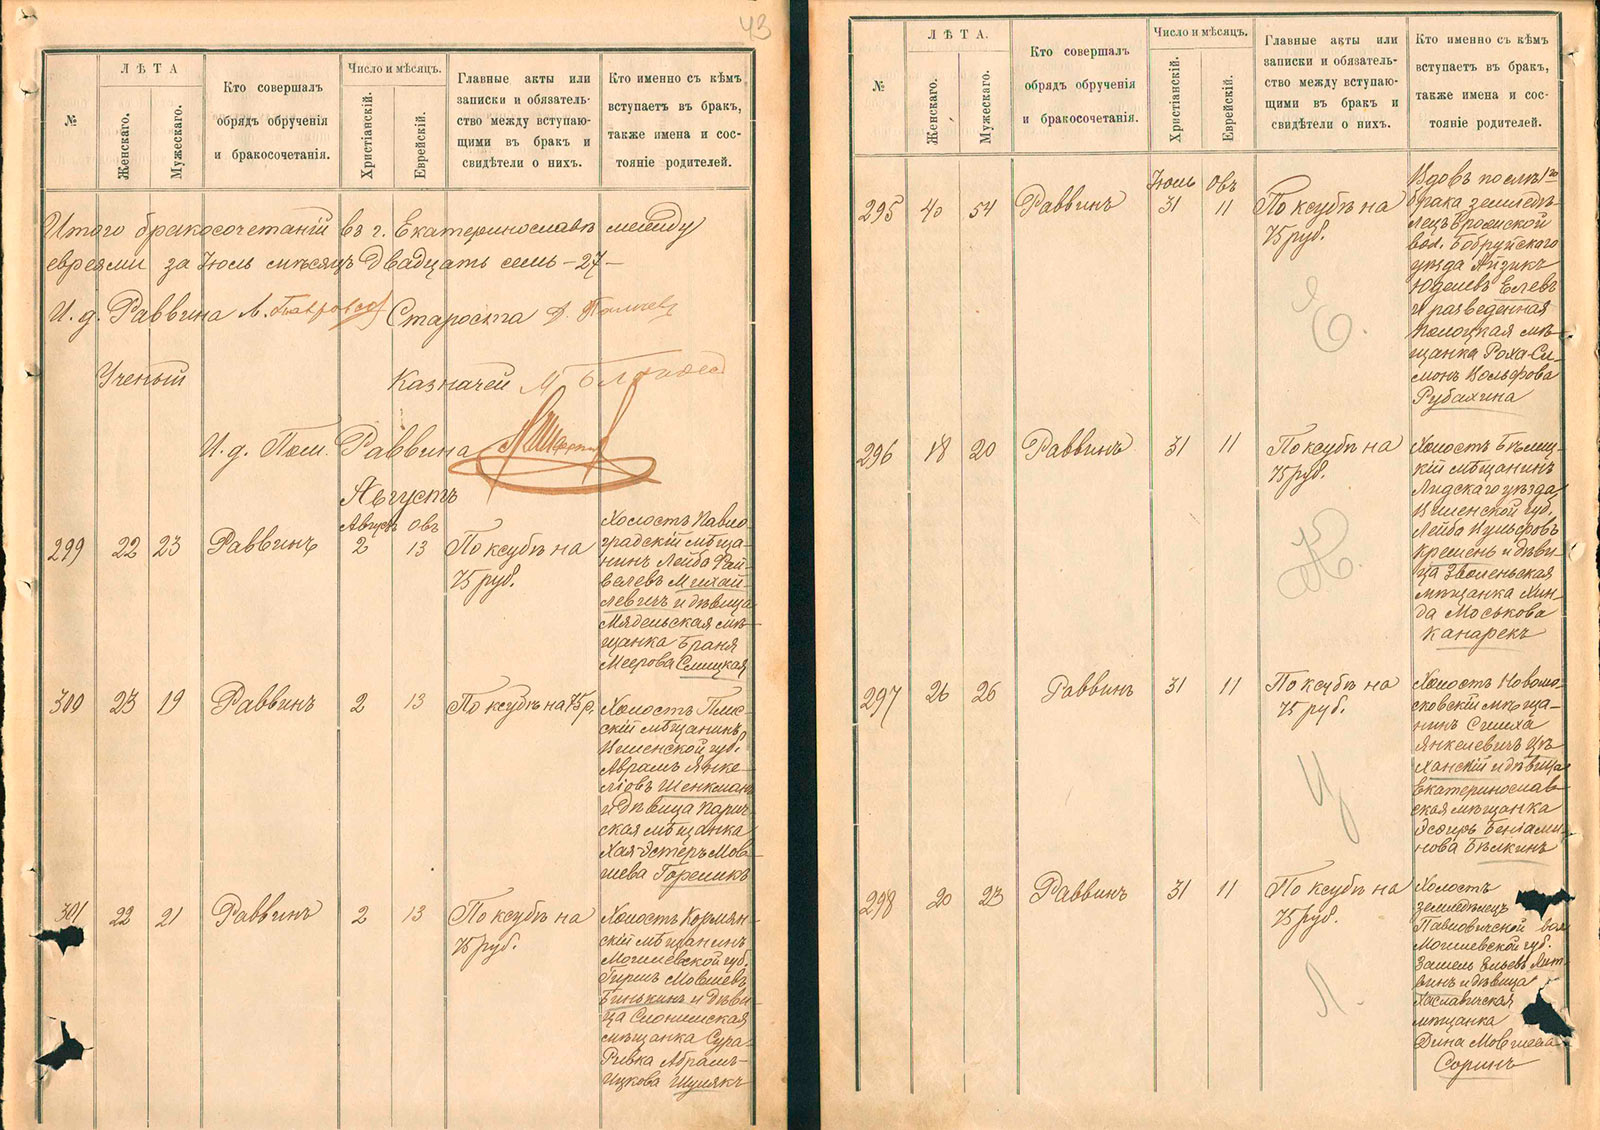 43
№
ЛѢТА
Женскаго.
Мужескаго.
Кто совершалъ
обрядъ обрученія
и бракосочетанія.
Число и мѣсяцъ.
Христіанскій.
Еврейскій.
Главные акты или
записки и обязатель-
ство между вступаю-
щими въ бракъ и
свидѣтели о нихъ.
Кто именно съ кѣмъ
вступаетъ въ бракъ,
также имена и сос-
тояніе родителей.
Итого бракосочетаній въ г. Екатеринославѣ между
евреями за Іюль мѣсяцъ двадцать семь - 27 -
И. д. Раввина Староста
Ученый Казначей
И. д. Пом. Раввина
Августъ
Августъ Овъ
299 22 23 Раввинъ 2 13 По ксубѣ на
75 руб.
Холостъ Павло-
градскій мѣща-
нинъ Лейба Фай-
велевъ Михай-
левичъ и дѣвица
Мядельская мѣ-
щанка Браня
Меерова Слицкая
300 23 19 Раввинъ 2 13 По ксубѣ на 75 р.
Холостъ Плис-
скій мѣщанинъ
Виленской губ.
Абрамъ Янке-
ліовъ Шенкман
и дѣвица Парич-
ская мѣщанка
Хая-Эстеръ Мов-
шева Гореликъ
301 22 21 Раввинъ 2 13 По ксубѣ на
75 руб.
Холостъ Кормян-
скій мѣщанинъ
Могилевской губ.
Гиршъ Мовшевъ
Бинькинъ и дѣви-
ца Слонимская
мѣщанка Сура-
Ривка Абрамъ-
Ицкова Шулякъ
№
ЛѢТА.
Женскаго.
Мужескаго.
Кто совершалъ
обрядъ обрученія
и бракосочетанія.
Число и мѣсяцъ.
Христіанскій.
Еврейскій.
Главные акты или
записки и обязатель-
ство между вступаю-
щими въ бракъ и
свидѣтели о нихъ.
Кто именно съ кѣмъ
вступаетъ въ бракъ,
также имена и сос-
тояніе родителей.
Іюль Овъ
295 40 54 Раввинъ 31 11 По ксубѣ на
75 руб.
Вдовъ послѣ 1го
брака землевѣ-
лецъ
вол. Бобруйскаго
уѣзда Айзикъ
Юделевъ Елевъ
и разведенная
Полоцкая мѣ-
щанка Роха-Си-
монъ Вольфова
Рубахина
Е.
296 18 20 Раввинъ 31 11 По ксубѣ на
75 руб.
Холостъ Бѣлиц-
кій мѣщанинъ
Лидскаго уѣзда
Виленской губ.
Лейба Вульфовъ
Кремень и дѣви-
ца Зволеньская
мѣщанка Хин-
да Моськова
Канарекъ
К.
297 26 26 Раввинъ 31 11 По ксубѣ на
75 руб.
Холостъ Новомо-
сковскій мѣща-
нинъ Симха
Янкелевичъ Цѣ-
ханскій и дѣвица
Екатеринослав-
ская мѣщанка
Эсѳирь Беніами-
нова Бѣлкинъ
Ц
298 20 23 Раввинъ 31 11 По ксубѣ на
75 руб.
Холостъ
землевѣлецъ
Павловичской вол
Могилевской губ.
Залмель Ельевъ Лит-
винъ и дѣвица
Хаславичская
мѣщанка
Дина Мовшева
Соринъ
Л.